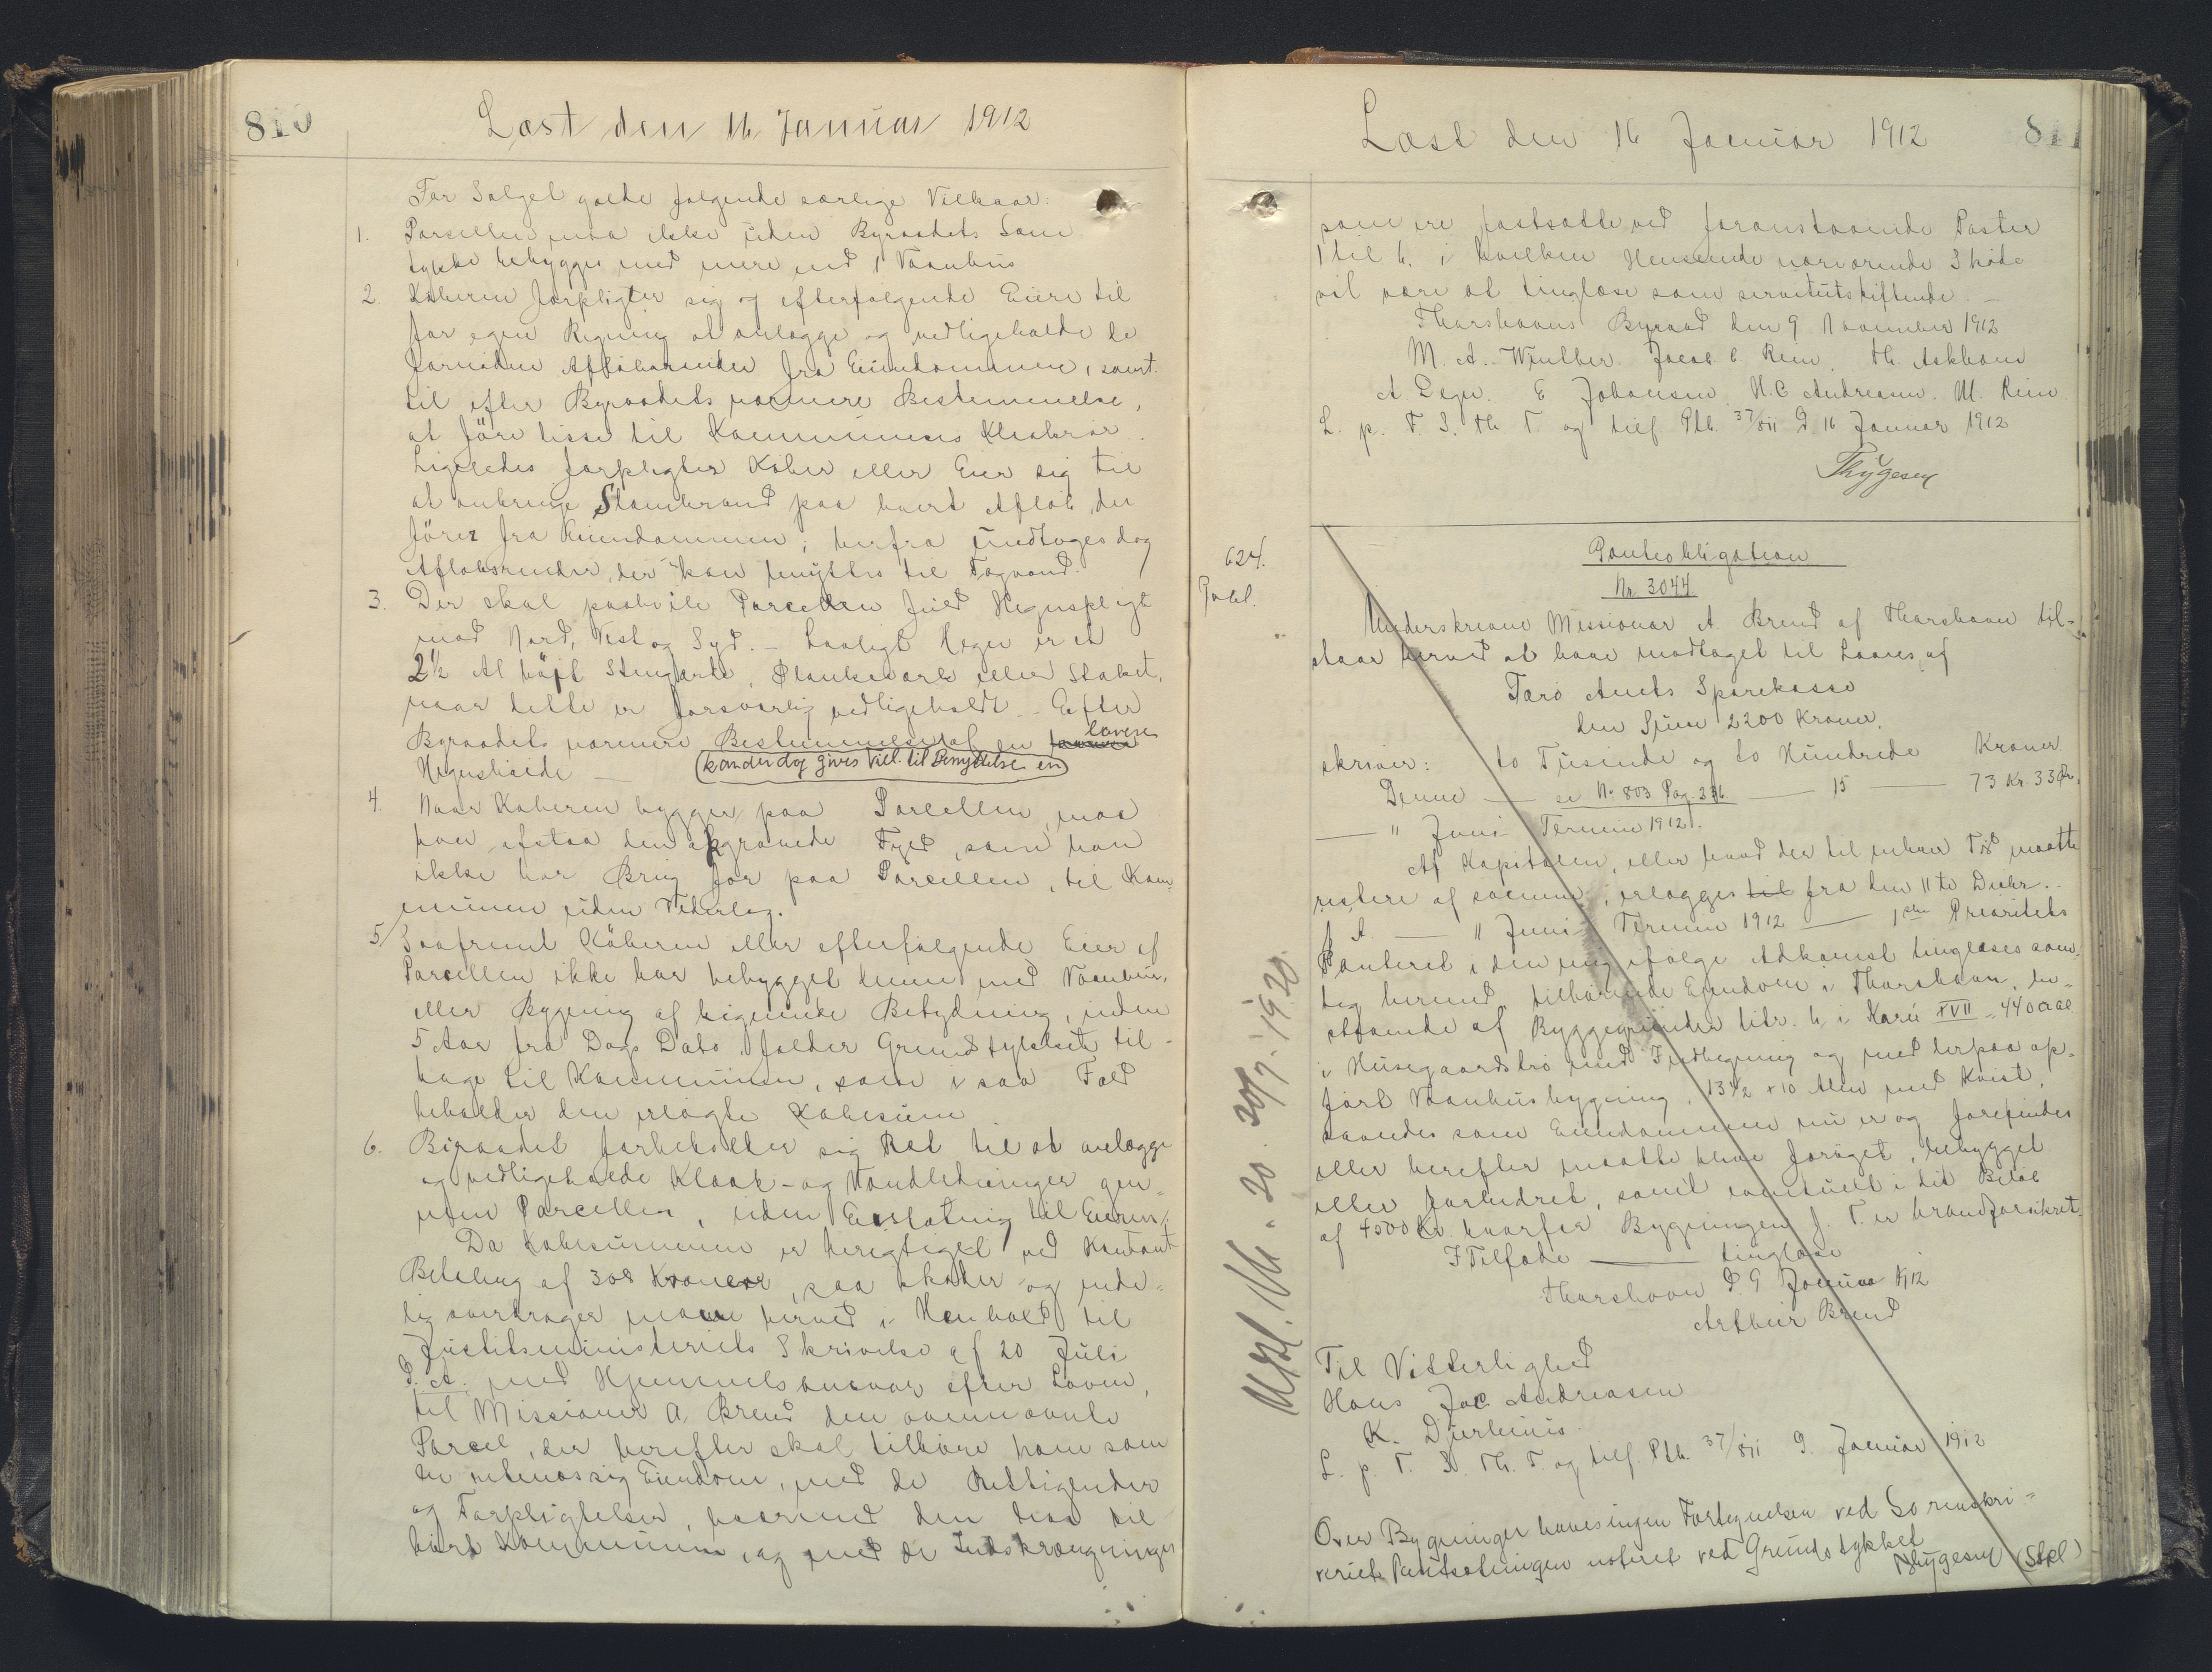 810
Læst den 16 Januar 1912
For Salget gælde følgende særlige Vilkaar:
1. Parcellen maa ikke uden Byraadets Sam
tykke bebygges med mere end 1 Vaanhus
2. Køberen forpligter sig og efterfølgende Eiere til
for egen Regning at anlægge og vedligeholde de
fornødne Afløbsrender fra Eiendommen, samt
til efter Byraadets nærmere Bestemmelse,
at føre disse til Kommunens Kloakrør.
Ligeledes forpligter Køber eller Eier sig til
at anbringe Slambrønd paa hvert Afløb, der
fører fra Eiendommen; herfra undtages dog
Afløbsrender, der kan benyttes til Tagvand.
3. Der skal paahvile Parcellen fuld Hegnspligt
mod Nord, Vest og Syd. – Lovligt Hegn er et
2½ Al højt Stengærde, Plankeværk eller Stakit,
naar dette er forsvarlig vedligeholdt. – Efter
Byraadets nærmere Bestemmelse af en lavere
Hegnshøide – (kan der dog gives Till. til Benyttelse en)
4. Naar Køberen bygger paa Parcellen, maa
han afstaa den afgravede Fyld, som han
ikke har Brug for paa Parcellen, til Kom
munen uden Vederlag.
5/ Saafremt Køberen eller efterfølgende Eier af
Parcellen ikke har bebygget denne med Vaanhus,
eller Bygning af lignende Betydning, inden
5 Aar fra Dags Dato, falder Grundstykket til-
bage til Kommunen, som i saa Fald
beholder den erlagte Købesum
6. Byraadet forbeholder sig Ret til at anlægge
og vedligeholde Kloak- og Vandledninger gen-
nem Parcellen, uden Erstatning til Eieren.
Da Købesummen er berigtiget ved Kontant
Betaling af 308 Kroner, saa skøder og ende-
lig overdrager man herved i Henhold til
Justitsministeriets Skrivelse af 20 Juli
d. A. med Hjemmelsansvar efter Loven,
til Missionær A. Brend den ovennævnte
Parcel, der herefter skal tilhøre ham som
en retmæssig Eiendom, med de Rettigheder
og Forpligtelser, hvormed den har til
hørt Kommunen, og med de Indskrænkninger
Læst den 16 Januar 1912
811
som ere fastsatte ved foranstaaende Poster
1 til 6. i hvilken Henseende nærværende Skøde
vil være at tinglæse som servitutstiftende. –
Thorshavns Byraad den 9 November 1912
M. A. Winther. Jacob C. Rein. Th. Askham
A Degn. E Johansen. H. C Andreasen. M. Rein
L. p. T. S. Th T. og tilf. Ptb. 37/811 D. 16 Januar 1912
Thygesen
624.
Panteobligation
Nr. 3044
Underskrevne Missionær A. Brend af Thorshavn til-
staar herved at have modtaget til Laans af
Færø Amts Sparekasse
den Sum 2200 Kroner,
skriver: to Tusende og to Hundrede Kroner
Denne — se No 803 Pag. 236 — 15 — 73 Kr. 33 Ør.
— 11 Juni Termin 1912.
Af Kapitalen, eller hvad der til enhver Tid maatte
restere af samme, erlægges til fra den 11te Decbr.
f. A. — 11 Juni Termin 1912 — 1ste Prioritets
Panteret i den mig ifølge Adkomst tinglæses sam-
tig hermed tilhørende Ejendom i Thorshavn, be-
staaende af Byggegrunden litr. h. i Karré XVII - 440 □ al
i Husegaardstrø med Indhegning og med derpaa op-
ført Vaanhusbygning, 13½ × 10 Alen med Kvist,
saaledes som Eiendommen nu er og forefindes
eller herefter maatte blive forøget, bebygget
eller forbedret, samt eventuelt i det Beløb
af 4500 Kr. hvorfor Bygningen f. T. er brandforsikret.
I Tilfælde — tinglæse
Thorshavn D. 9 Januar 1912
Arthur Brend
Til Vitterlighed
Hans Jac Andreasen
K. Djurhuus
L. p. T. S. Th. T. og tilf. Ptb. 37/811 9. Januar 1912
Over Bygninger haves ingen Fortegnelsen ved Sorenskri-
veriet. Pantsætningen noteret ved Grundstykket
Thygesen (Stpl)